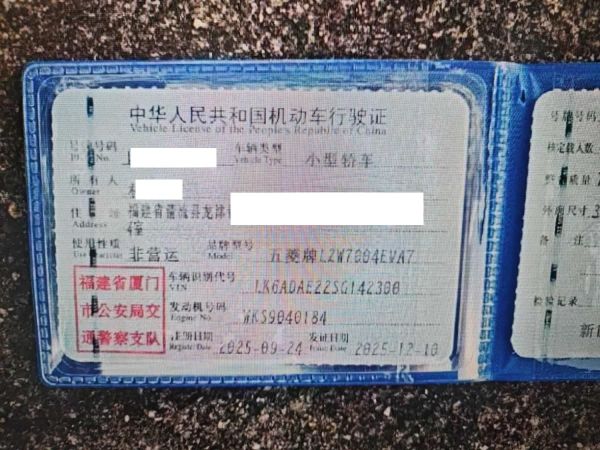 中华人民共和国机动车行驶证
Vehicle License of the People's Republic of China
号牌号码 车辆类型 小型轿车
Plate No. Vehicle Type
所有人
Owner
住址 福建省 县龙津
Address 4幢
使用性质 非营运 品牌型号 五菱牌LZW7004EVA7
Use Character Model
福建省厦门市公安局交通警察支队
车辆识别代号 LK6ADAE22SG142300
VIN
发动机号码 WKS9040184
Engine No.
注册日期 2025-09-24 发证日期 2025-12-10
Register Date Issue Date
号牌号码
核定载人数
整 质量
外廓尺寸
备注
检验记录